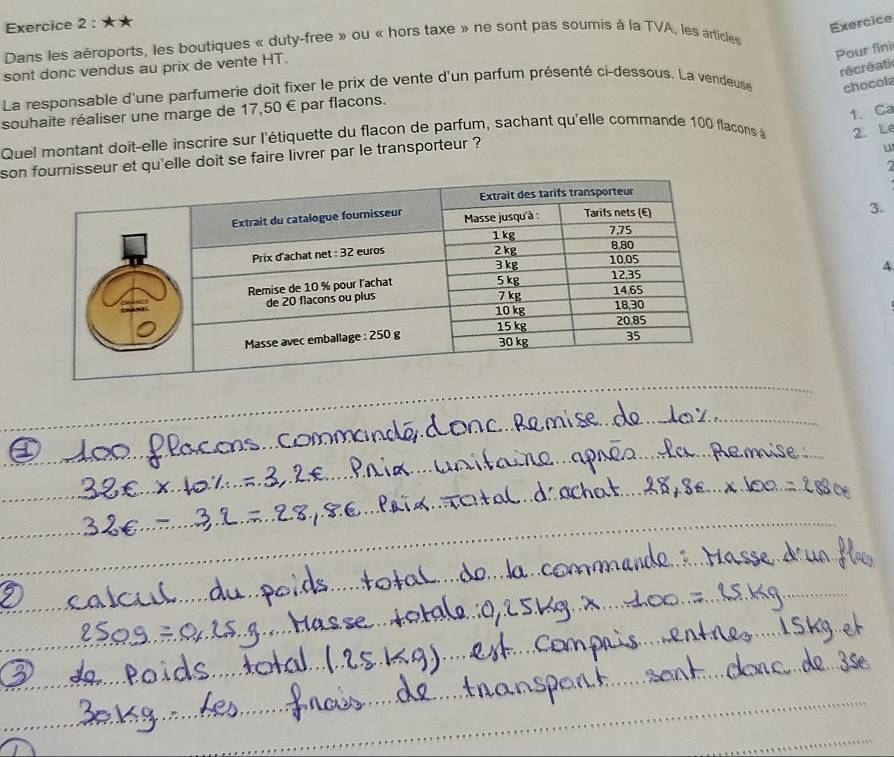 Exercice 2 : ★★
Dans les aéroports, les boutiques « duty-free » ou « hors taxe » ne sont pas soumis à la TVA, les articles
sont donc vendus au prix de vente HT.
La responsable d'une parfumerie doit fixer le prix de vente d'un parfum présenté ci-dessous. La vendeuse
souhaite réaliser une marge de 17,50 € par flacons.
Quel montant doit-elle inscrire sur l'étiquette du flacon de parfum, sachant qu'elle commande 100 flacons à
son fournisseur et qu'elle doit se faire livrer par le transporteur ?
Extrait du catalogue fournisseur
Prix d'achat net : 32 euros
Remise de 10 % pour l'achat
de 20 flacons ou plus
Masse avec emballage : 250 g
Extrait des tarifs transporteur
Masse jusqu'à : Tarifs nets (€)
1 kg 7,75
2 kg 8,80
3 kg 10,05
5 kg 12,35
7 kg 14,65
10 kg 18,30
15 kg 20,85
30 kg 35
CHANCE
CHANEL
① 100 flacons commandé, donc Remise de 10%.
32€ x 10% = 3,2€ Prix unitaire après la Remise :
32€ - 3,2 = 28,8€ Prix Total d'achat 28,8€ x 100 = 2880€
② calcul du poids total de la commande : Masse d'un flac
250g = 0,25 g. Masse totale 0,25kg x 100 = 25 kg
③ de poids total (25 kg) est compris entre 15kg et
30kg. Les frais de transport sont donc de 35€
Exercice
Pour fini
récréati
chocola
1. Ca
2. Le
u
2
3.
4